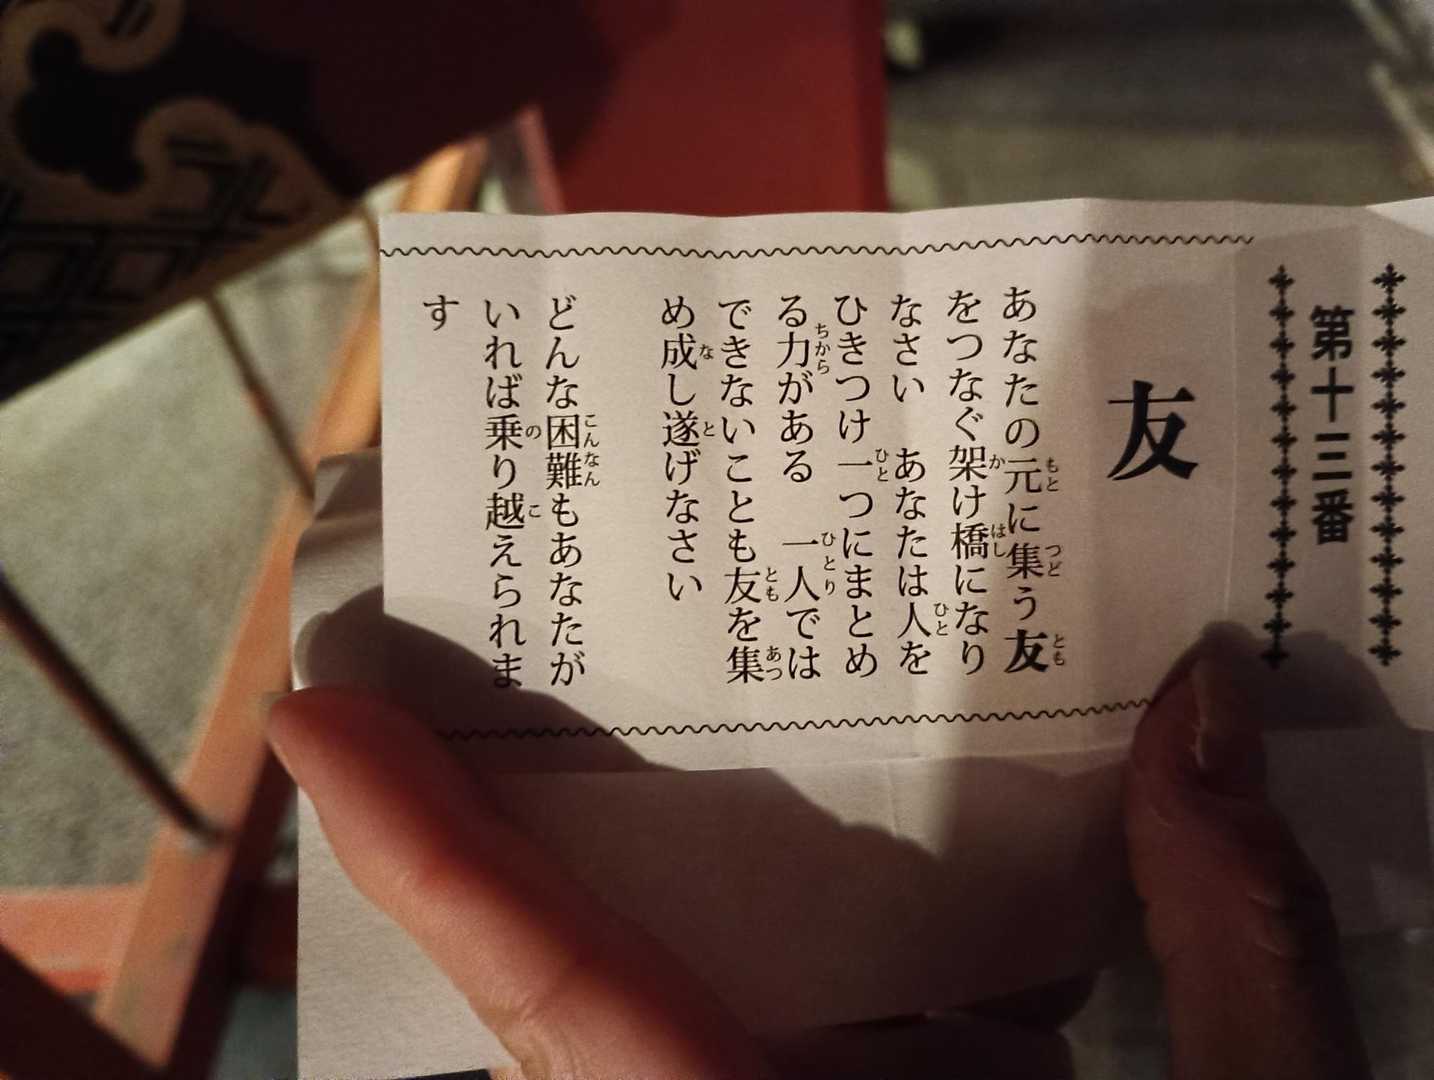 第十三番
友
あなたの元に集う友
をつなぐ架け橋になり
なさい　あなたは人を
ひきつけ一つにまとめ
る力がある　一人では
できないことも友を集
め成し遂げなさい
どんな困難もあなたが
いれば乗り越えられま
す